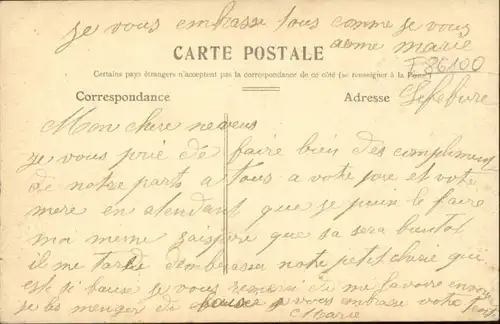 je vous embrasse tous comme je vous
aême marie
CARTE POSTALE
F 86100
Certains pays étrangers n'acceptent pas la correspondance de ce côté (se renseigner à la Poste)
Correspondance
Adresse Lefebvre
Mon chere neveus
je vous prie de faire bien des compliment
de notre parts a tous a votre père et votre
mere en atendant que je puise le faire
moi meme jaispire que sa sera buintot
il me tarde dembrasser notre petit cherie qui
est si bause je vous remerci de me lavoire envoyer
je les menger de bauser je vous embrase votre tente
Marie